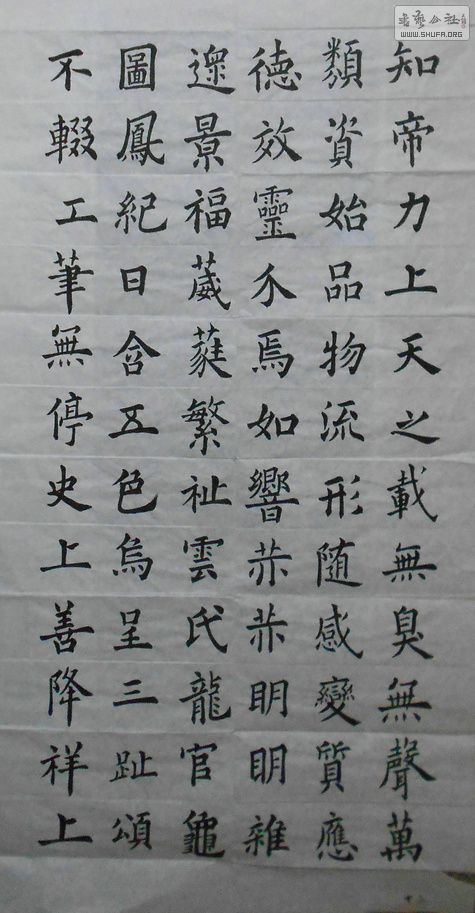 知帝力上天之載無臭無聲萬
類資始品物流形隨感變質應
德效靈介焉如響赫赫明明雜
遝景福葳蕤繁祉雲氏龍官龜
圖鳳紀日含五色烏呈三趾頌
不輟工筆無停史上善降祥上
書藝公社
WWW.SHUFA.ORG